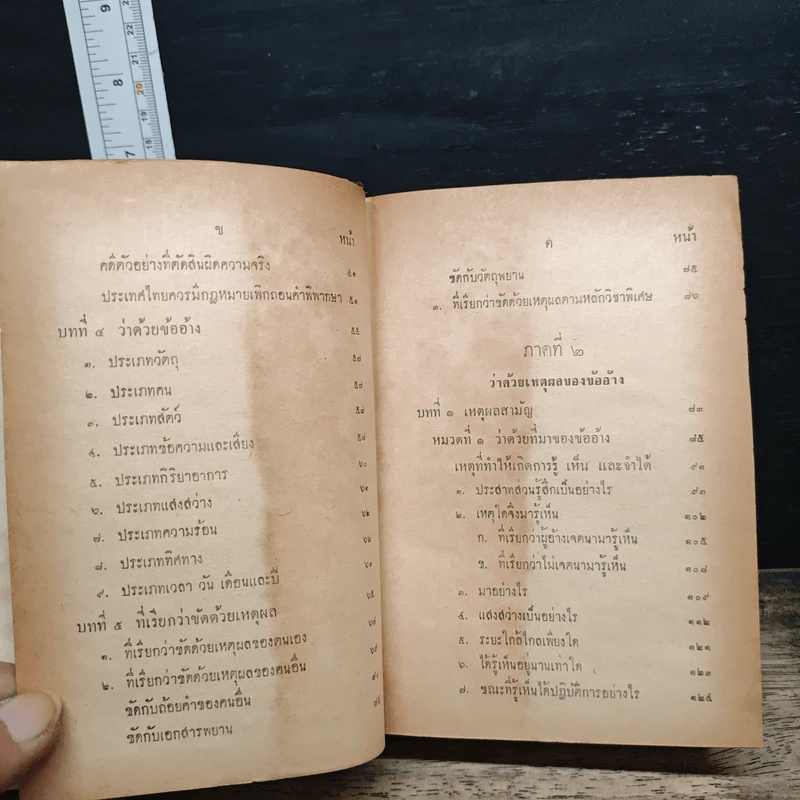 ข
หน้า
คดีตัวอย่างที่ตัดสินผิดความจริง ๔๑
ประเทศไทยควรมีกฎหมายเพิกถอนคำพิพากษา ๕๑
บทที่ ๔ ว่าด้วยข้ออ้าง ๕๕
๑. ประเภทวัตถุ ๕๗
๒. ประเภทคน ๕๗
๓. ประเภทสัตว์ ๕๘
๔. ประเภทข้อความและเสียง ๕๘
๕. ประเภทกิริยาอาการ ๖๐
๖. ประเภทแสงสว่าง ๖๑
๗. ประเภทความร้อน ๖๒
๘. ประเภททิศทาง
๙. ประเภทเวลา วัน เดือนและปี
บทที่ ๕ ที่เรียกว่าขัดด้วยเหตุผล
๑. ที่เรียกว่าขัดด้วยเหตุผลของตนเอง
๒. ที่เรียกว่าขัดด้วยเหตุผลของคนอื่น
ขัดกับถ้อยคำของคนอื่น
ขัดกับเอกสารพยาน
ค
หน้า
ขัดกับวัตถุพยาน ๗๕
๓. ที่เรียกว่าขัดด้วยเหตุผลตามหลักวิชาพิเศษ ๗๖
ภาคที่ ๒
ว่าด้วยเหตุผลของข้ออ้าง
บทที่ ๑ เหตุผลสามัญ ๘๓
หมวดที่ ๑ ว่าด้วยที่มาของข้ออ้าง ๘๕
เหตุที่ทำให้เกิดการรู้ เห็น และจำได้ ๙๑
๑. ประสาทส่วนรู้สึกเป็นอย่างไร ๙๓
๒. เหตุใดจึงมารู้เห็น ๑๐๒
ก. ที่เรียกว่าผู้อ้างเจตนามารู้เห็น ๑๐๕
ข. ที่เรียกว่าไม่เจตนามารู้เห็น ๑๐๘
๓. มาอย่างไร ๑๐๙
๔. แสงสว่างเป็นอย่างไร ๑๑๒
๕. ระยะใกล้ไกลเพียงใด ๑๒๑
๖. ได้รู้เห็นอยู่นานเท่าใด ๑๒๓
๗. ขณะที่รู้เห็นได้ปฏิบัติการอย่างไร ๑๒๕